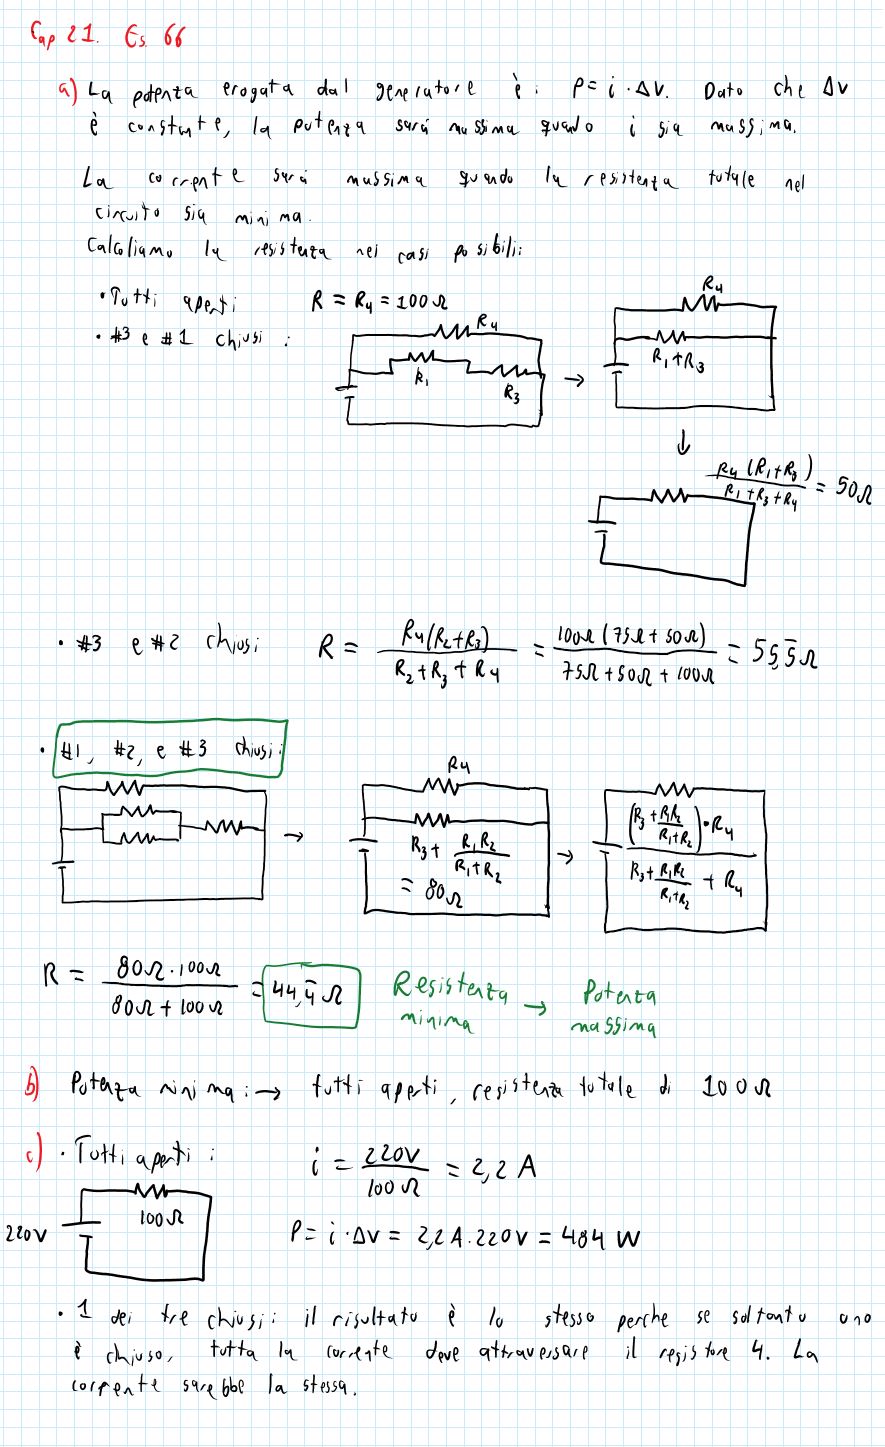 Cap 21. Es. 66
a) La potenza erogata dal generatore è: P = i · ΔV. Dato che ΔV
è constante, la potenza sará massima quando i sia massima.
La corrente sará massima quando la resistenza totale nel
circuito sia minima.
Calcoliamo la resistenza nei casi posibili:
• Tutti aperti R = R4 = 100Ω
• #3 e #1 chiusi:
R4
R1
R3
→
R4
R1 + R3
↓
R4 (R1+R3) / R1 + R3 + R4 = 50Ω
• #3 e #2 chiusi R = R4(R2+R3) / R2 + R3 + R4 = 100Ω (75Ω + 50Ω) / 75Ω + 50Ω + 100Ω = 55,5̄Ω
• #1, #2, e #3 chiusi:
→
R4
R3 + R1R2 / R1+R2
= 80Ω
→
(R3 + R1R2 / R1+R2) · R4 / R3 + R1R2 / R1+R2 + R4
R = 80Ω · 100Ω / 80Ω + 100Ω = 44,4̄ Ω
Resistenza minima → Potenza massima
b) Potenza minima: → tutti aperti, resistenza totale di 100Ω
c) • Tutti aperti:
i = 220V / 100Ω = 2,2 A
100Ω
220V
P = i · ΔV = 2,2A · 220V = 484 W
• 1 dei tre chiusi: il risultato è lo stesso perche se soltanto uno
è chiuso, tutta la corrente deve attraversare il resistore 4. La
corrente sarebbe la stessa.